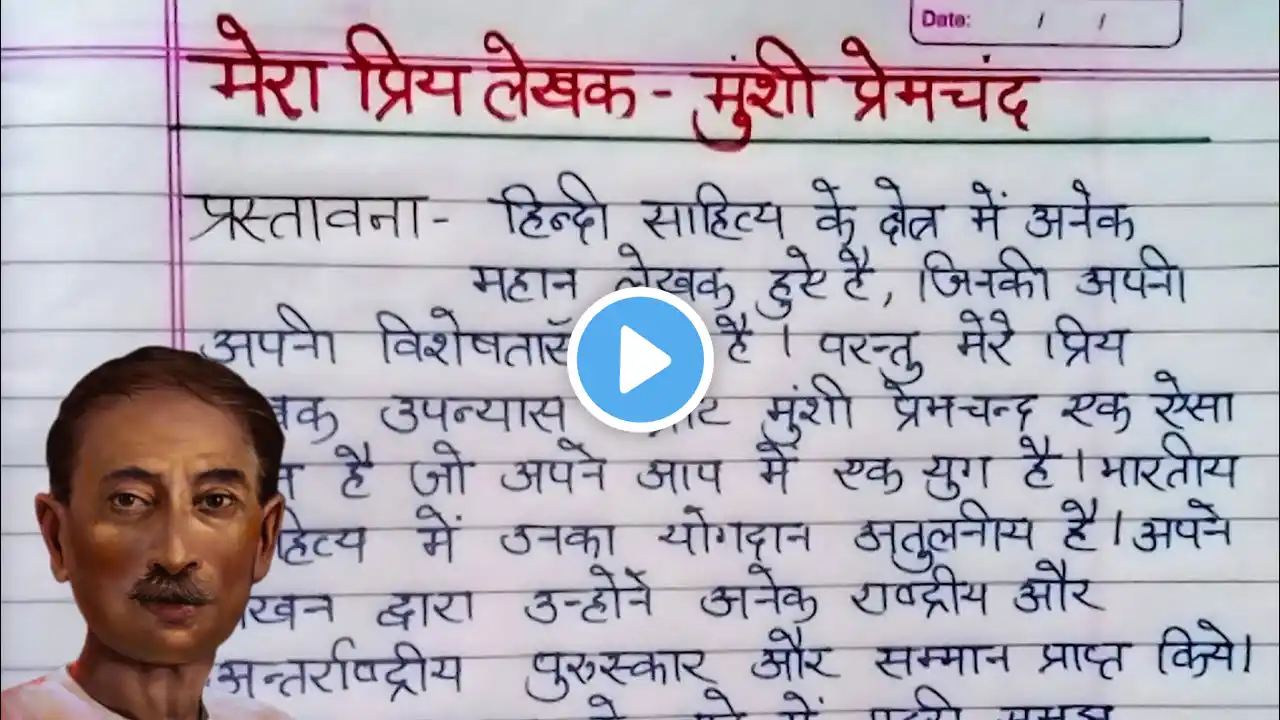 Date: / /
मेरा प्रिय लेखक - मुंशी प्रेमचंद
प्रस्तावना - हिन्दी साहित्य के क्षेत्र में अनेक
महान लेखक हुऐ है, जिनकी अपनी
अपनी है । परन्तु मेरे प्रिय
उपन्यास मुंशी प्रेमचन्द एक ऐसा
है जो अपने आप में एक युग है । भारतीय
में उनका योगदान अतुलनीय है । अपने
द्वारा उन्होनें अनेक राष्ट्रीय और
अन्तर्राष्ट्रीय पुरुस्कार और सम्मान प्राप्त किये।